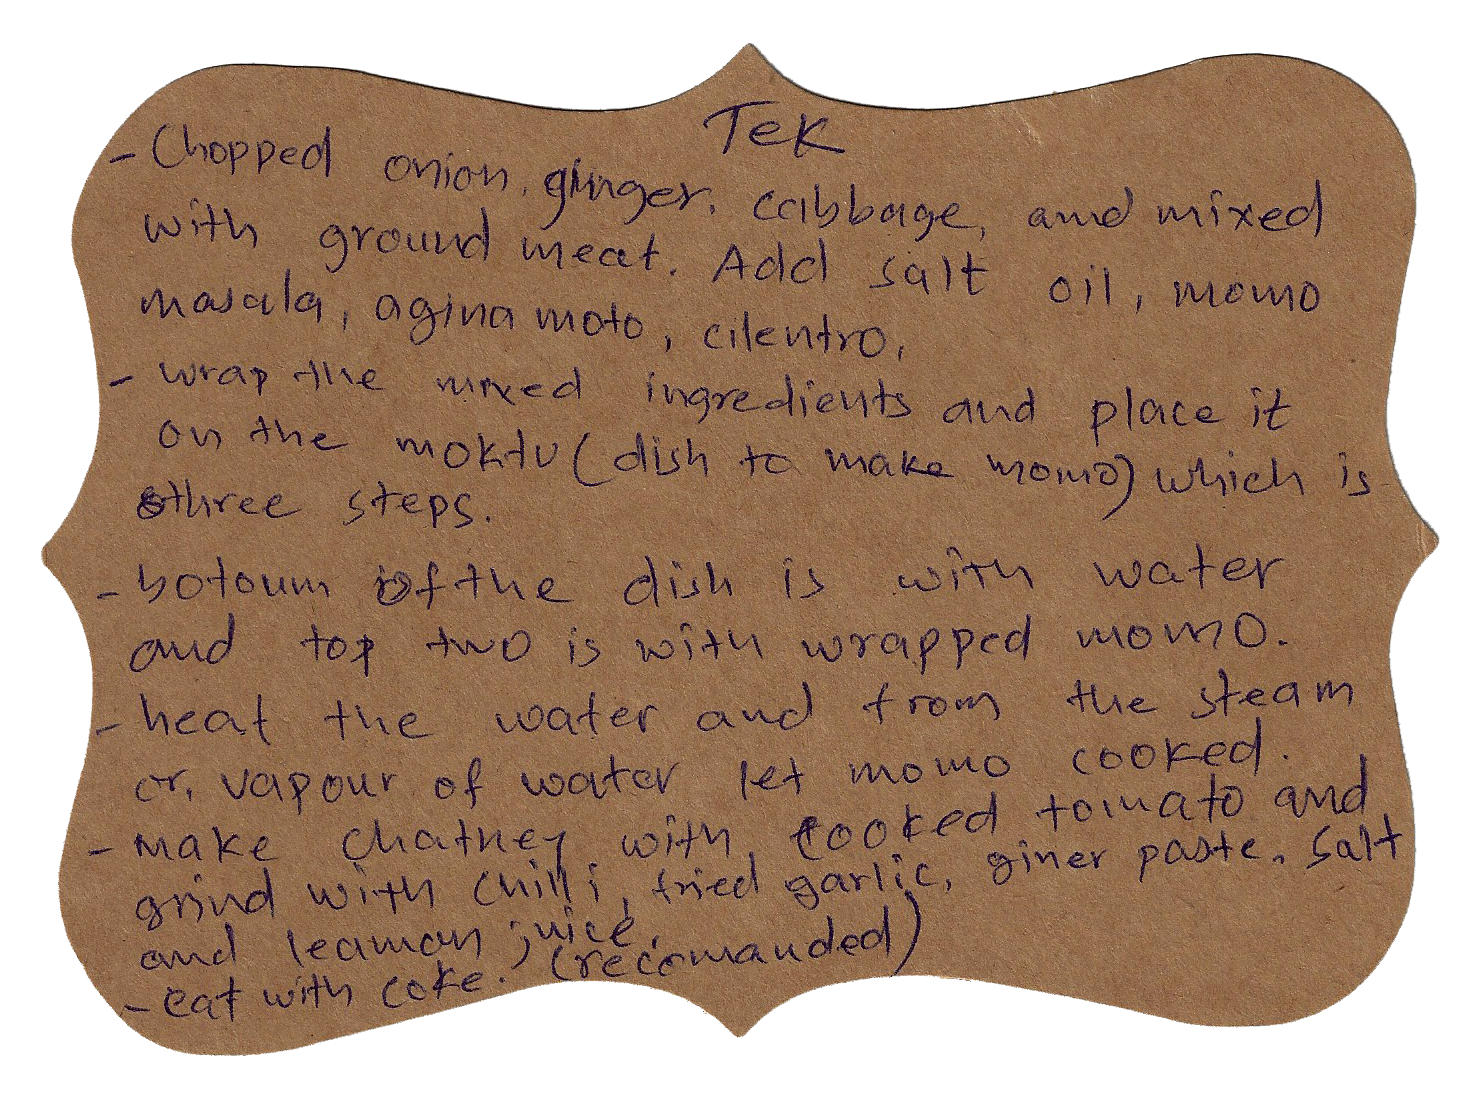 Tek
- Chopped onion, ginger, cabbage, and mixed
with ground meat. Add salt oil, momo
masala, agina moto, cilentro,
- wrap the mixed ingredients and place it
on the moktu (dish to make momo) which is
three steps.
- botoum of the dish is with water
and top two is with wrapped momo.
- heat the water and from the steam
or, vapour of water let momo cooked.
- make chatney with cooked tomato and
grind with chilli, fried garlic, giner paste, salt
and leamon juice,
- eat with coke. (recomanded)